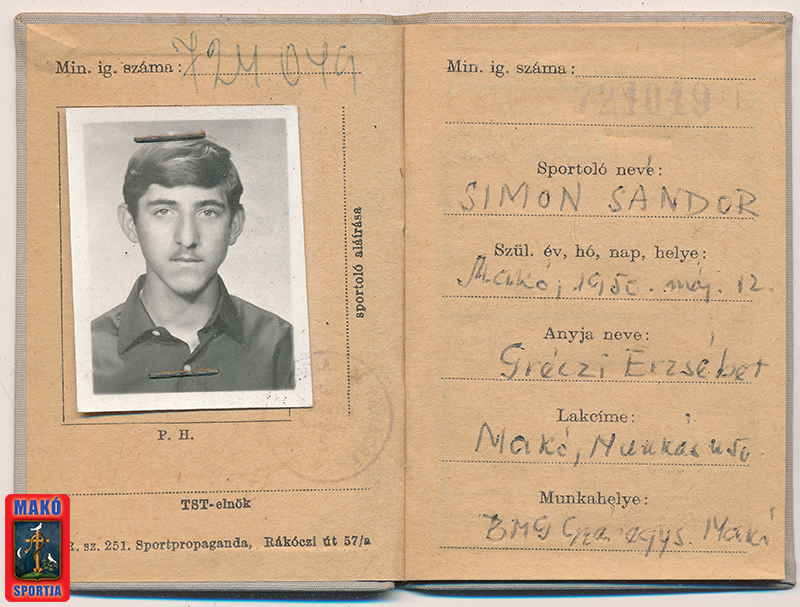 Min. ig. száma: 721019
sportoló aláírása
P. H.
TST-elnök
R. sz. 251. Sportpropaganda, Rákóczi út 57/a
MAKÓ
SPORTJA
Min. ig. száma:
721019
Sportoló neve:
SIMON SÁNDOR
Szül. év, hó, nap, helye:
Makó, 1950. máj. 12.
Anyja neve:
Gréczi Erzsébet
Lakcíme:
Makó, Munkás u
Munkahelye:
BMG Makó